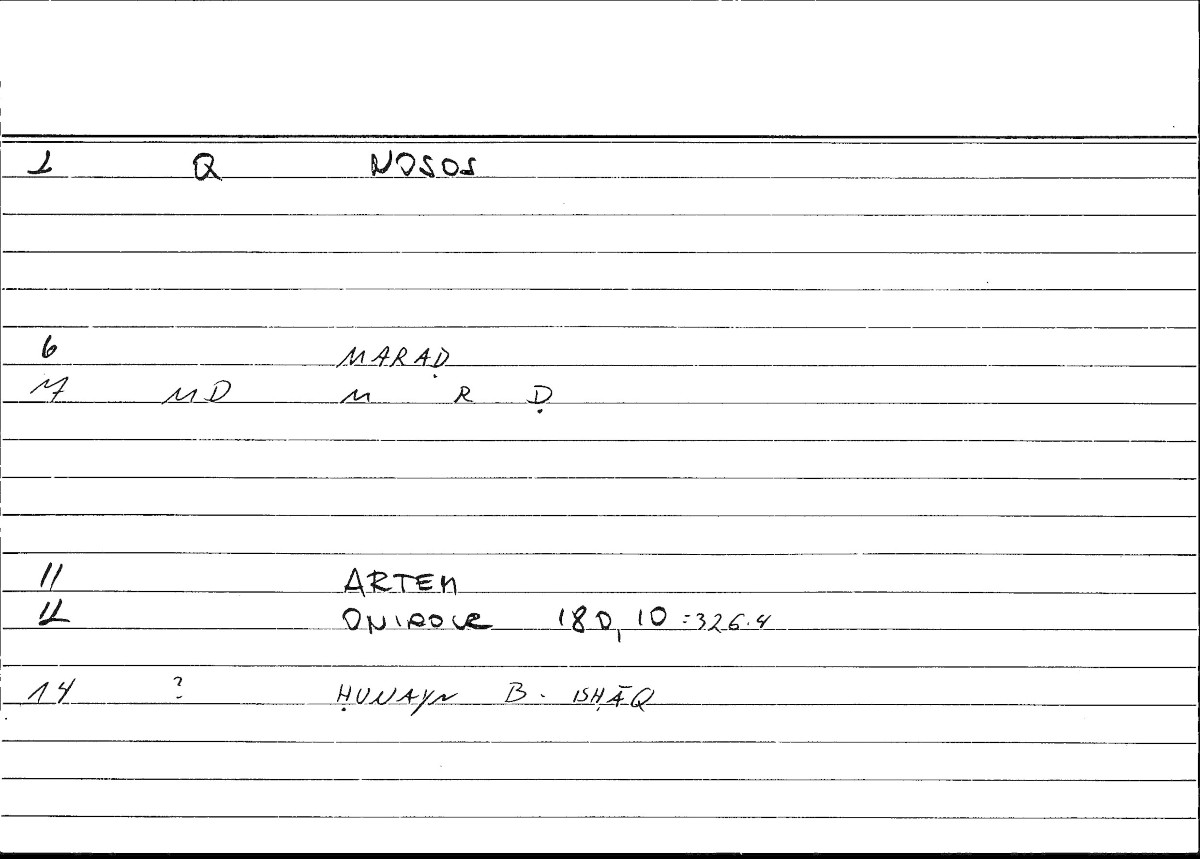 1 Q NOSOS
6 MARAḌ
7 MD M R Ḍ
11 ARTEM
12 ONIROCR 180,10 =326.4
14 ? ḤUNAYN B. ISḤĀQ